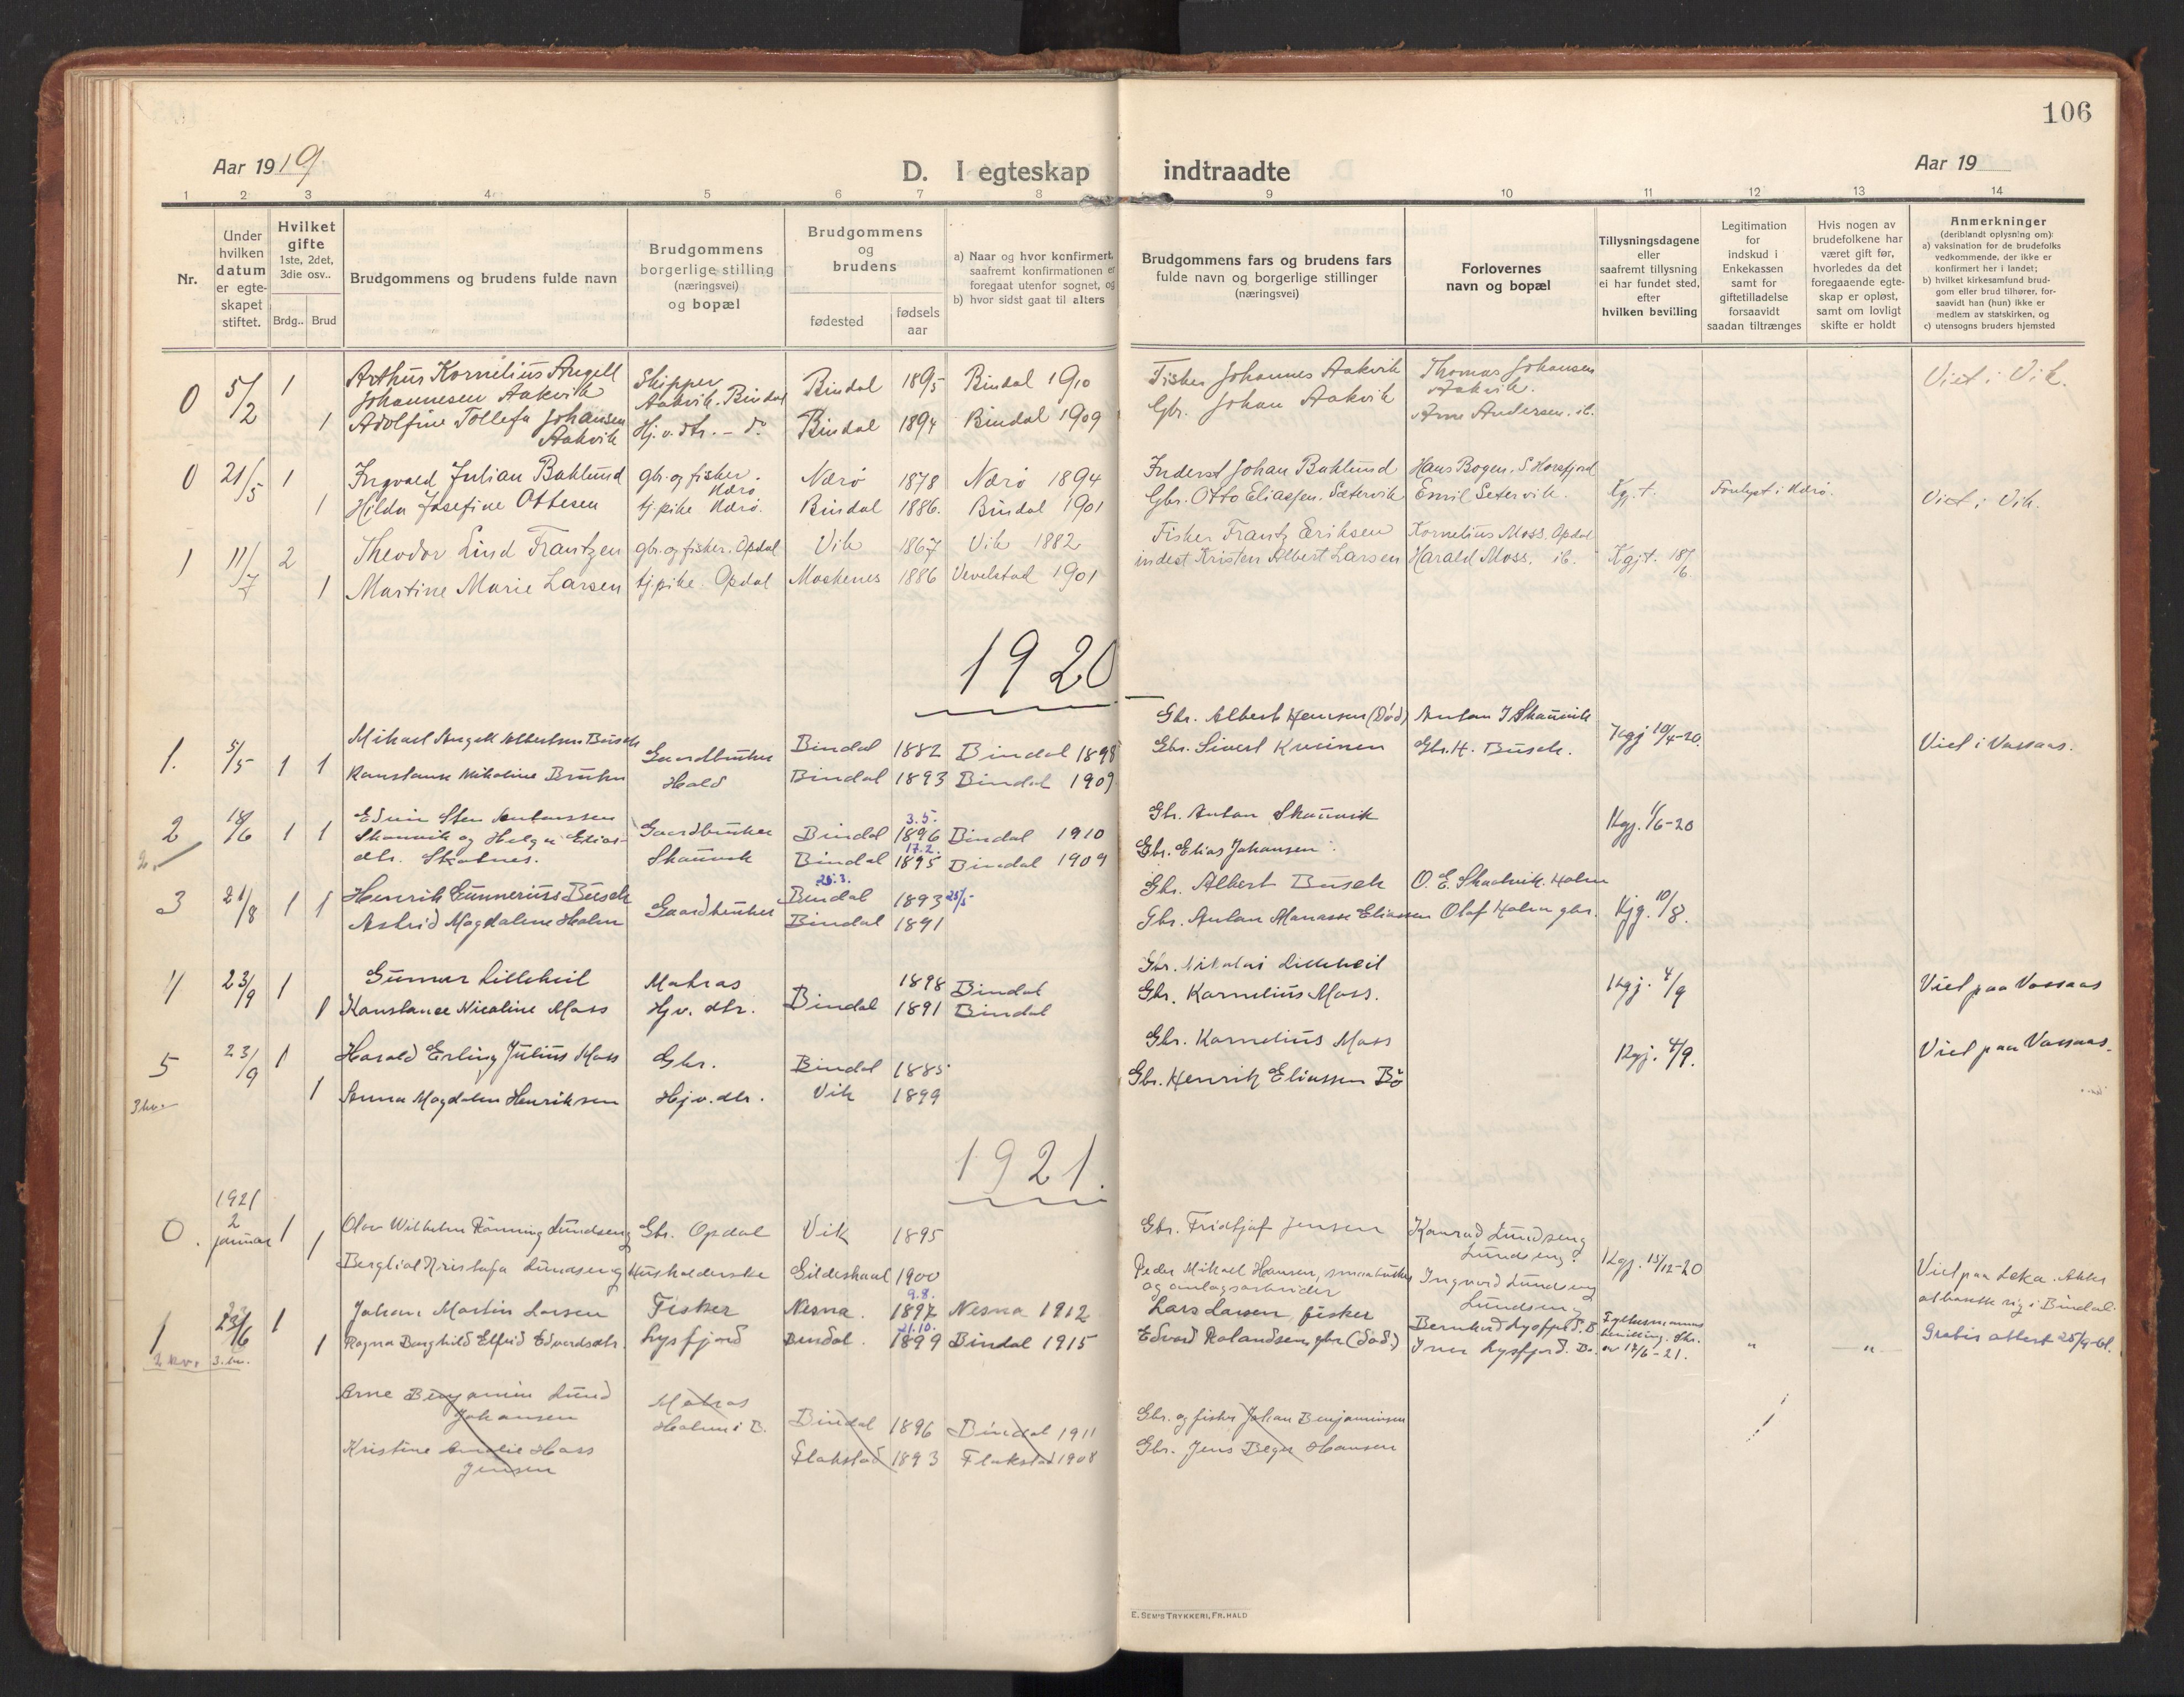 106
Aar 1919
D. I egteskap indtraadte
Aar 19
1 2 3 4 5 6 7 8 9 10 11 12 13 14
Nr.
Under hvilken datum er egte-skapet stiftet.
Hvilket gifte 1ste, 2det, 3die osv..
Brdg.. Brud
Brudgommens og brudens fulde navn
Brudgommens borgerlige stilling (næringsvei) og bopæl
Brudgommens og brudens
fødested
fødsels aar
a) Naar og hvor konfirmert, saafremt konfirmationen er foregaat utenfor sognet, og
b) hvor sidst gaat til alters
Brudgommens fars og brudens fars fulde navn og borgerlige stillinger (næringsvei)
Forlovernes navn og bopæl
Tillysningsdagene eller saafremt tillysning ei har fundet sted, efter hvilken bevilling
Legitimation for indskud i Enkekassen samt for giftetilladelse forsaavidt saadan tiltrænges
Hvis nogen av brudefolkene har været gift før, hvorledes da det foregaaende egte-skap er opløst, samt om lovligt skifte er holdt
Anmerkninger (deriblandt oplysning om):
a) vaksination for de brudefolks vedkommende, der ikke er konfirmert her i landet;
b) hvilket kirkesamfund brud-gom eller brud tilhører, for-saavidt han (hun) ikke er medlem av statskirken, og
c) utensogns bruders hjemsted
0 5/2 1 Arthur Kornelius Angell Skipper Bindal 1895 Bindal 1910 Fisker Johannes Aakvik Thomas Johansen Viet i Vik.
Johannesen Aakvik Aakvik. Bindal Gbr. Johan Aakvik Aakvik.
1 Adolfine Tollefa Johansen Hj.v.dtr. - do Bindal 1894 Bindal 1909 Arne Andersen. ib.
Aakvik
0 21/5 1 Ingvald Julian Buhlund gbr. og fisher. Nærø 1878 Nærø 1894 Inderst Johan Buhlund Hans Bogen. S. Horsfjord
Nærø
1 Hilda Josefine Ottesen tj.pike Nærø. Bindal 1886. Bindal 1901 Gbr. Otto Eliassen. Sætervik Emil Setervik. Kg.t. Forlyst i Nærø. Viet i Vik.
1 11/7 2 Theodor Lind Frantzen gbr. og fisker. Opdal Vik 1867 Vik 1882 Fisker Frantz Eriksen Kornelius Moss. Opdal
1 Martine Marie Larsen tj.pike Opdal Moskenes 1886 Vevelstad 1901 indest Kristen Albert Larsen Harald Moss. ib. Kgjt. 18/6
1920
1. 5/5 1 1 Mikael Angell Albertsen Busch Gaardbruker Bindal 1882 Bindal 1898 Gbr. Albert Hensen (Død) Anton J Skaunvik Kgj 10/4-20. Viet i Vassaas.
Konstanse Nikoline Bruhn Hald Bindal 1893 Bindal 1909 Gbr. Sivert Kveinen Gbr. H. Busch.
2 18/6 1 1 Edvin Sten Antonssen Gaardbruker 3.5. Gbr. Anton Skaunvik Kgj. 1/6-20
Skaunvik og Helga Elias- Bindal 1896 Bindal 1910
2. dtr. Skotnes. Skaunvik 17.2. Bindal 1895 Bindal 1909 Gbr. Elias Johansen.
3 21/8 1 1 Henrik Gunnerius Busch Gaardbruker 25.3. Bindal 1893 25/5 Gbr. Albert Busch O. E. Skadvik. Holm Kjg. 10/8.
Astrid Magdaline Holm Bindal 1891 Gbr. Anton Manasse Eliassen Olaf Holm gbr.
4 23/9 1 Gunnar Lilleheil Matros 1898 Bindal Gbr. Nikolai Lilleheil Kgj. 4/9 Viet paa Vassaas
1 Konstanse Nicoline Moss Hjv. dtr. Bindal 1891 Bindal Gbr. Kornelius Moss.
5 23/9 1 Harald Erling Julius Moss Gbr. Bindal 1885 Gbr. Kornelius Moss Kgj. 4/9. Viet paa Vassaas.
3 kv. 1 Anna Magdalen Henriksen Hjv. dtr. Vik 1899 Gbr. Henrik Eliassen Bö
1921.
1921
0. 2 januar 1 1 Olav Wilhelm Rönning Lundseng Gbr. Opdal Vik 1895 Gbr. Fridtjof Jensen Konrad Lundseng
Lundseng. Kgj. 15/12-20
Bergliot Kristofa Lundseng Husholderske Gildeskaal 1900 Peder Mikael Hansen, smaabruker Ingvard Lundseng Viet paa Leka.
og anlagsarbeider Lundseng
1 23/6 1 Johan Martin Larsen Fisker Nesna. 9.8. 1897 Nesna 1912 Lars Larsen fisker Bernhard Lysfjord. B Fylkesmannens
bevilling.
1 Ragna Borghild Elfrid Edvardsdtr. Lysfjord Bindal. 21.10. 1899 Bindal 1915 Edvard Rolandsen gbr (død.) Iver Lysfjord. Do. av 17/6-21. " -"- Gratis attest 25/9-61.
2 kv. 3. br.
Arne Benjamin Lund Matros Bindal 1896 Bindal 1911 Gbr. og fisker Johan Benjaminsen
Johansen Holm i B.
Kristine Amalie Hass Flakstad 1893 Flakstad 1908 Gbr. Jens Beyer Hansen
Jensen
E. SEM'S TRYKKERI, FR.HALD